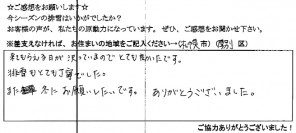 ☆ご感想をお願いします☆
今シーズンの排雪はいかがでしたか?
お客様の声が、私たちの原動力になっています。ぜひ、ご感想をお聞かせ下さい。
※差支えなければ、お住まいの地域をご記入ください→(札幌市)(区)
来てもらえる日が決っているのでとても良かったです。
排雪もとても丁寧でした。
また冬にお願いしたいです。ありがとうございました。
ご協力ありがとうございました!